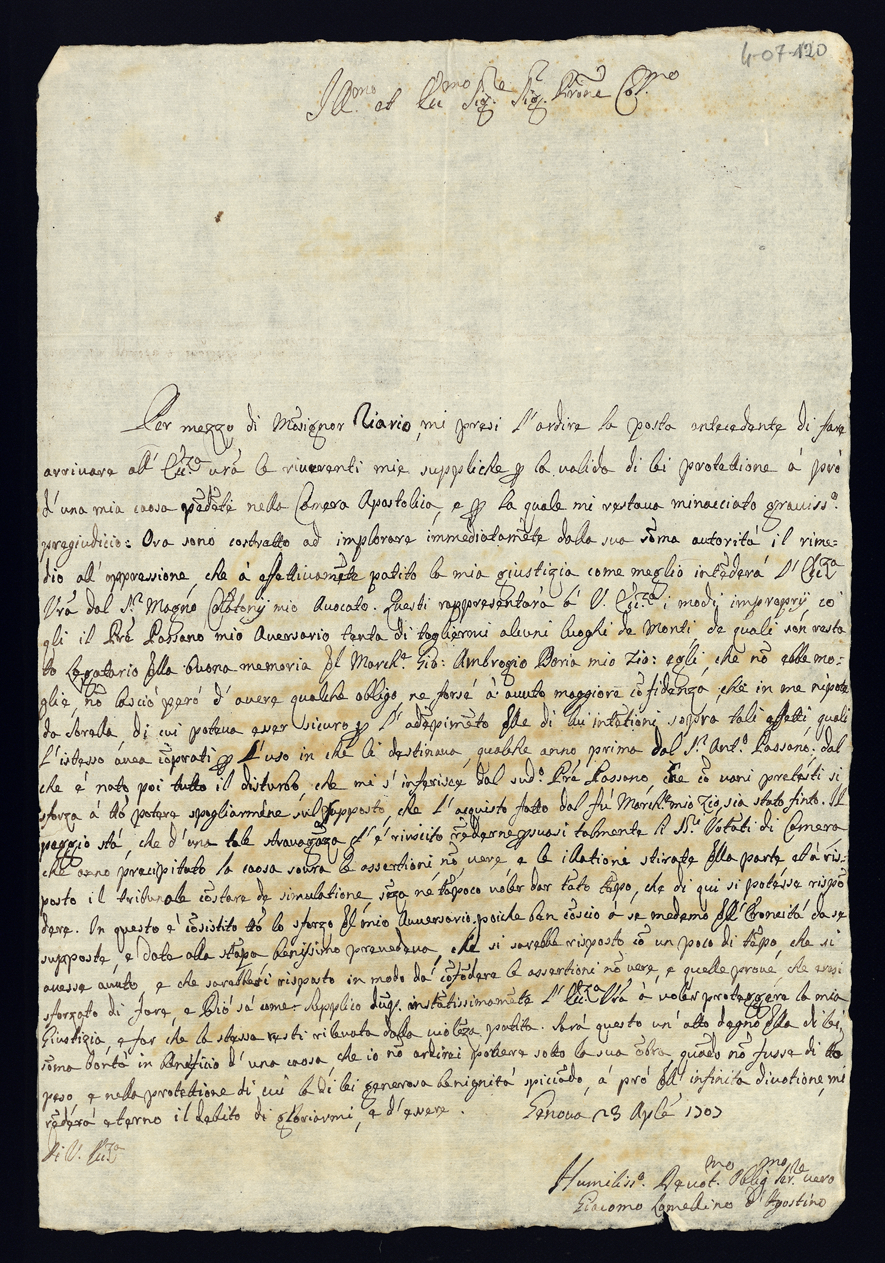 4-07-120
Ill.mo et Ecc.mo Sig.re Sig.r Prone Col.mo
Per mezzo di Mõsignor Riario, mi presi l'ardire la posta antecedente di fare
arrivare all' Ecc.za vrã le riverenti mie suppliche p la valida di lei protettione à prò
d'una mia caosa pẽdẽte nella Camera Apostolica, e p la quale mi restava minacciato graviss.o
pregiudicio: Ora sono costratto ad implorare immediatamẽte dalla sua sõma autorità il rime=
dio all' oppressione, che à effettivamẽte patito la mia giustizia come meglio intẽderà l' Ecc.za
Vrã dal S.r Magnẽ mio Avocato. Questi rappresentarà à V. Ecc.za i modi improprij cõ
gli il Prẽ Passano mio Aversario tenta di togliermi alcuni luoghi de Monti de quali son resta
to Legatario della buona memoria del March.e Gio: Ambrogio Doria mio Zio: egli, che nõ ebbe mo=
glie, nõ lasciò però d'avere qualche obligo, ne forse à avuto maggiore cõfidenza, che in me nipote
da sorella di cui poteva esser sicuro p l'adẽpimẽto delle di lui intẽtioni sopra tali effetti, quali
l'istesso avea cõprati p l'uso in che li destinava, qualche anno prima dal S.r Ant.o Passano. dal
che è nato poi tutto il disturbo, che mi s'inferisce dal sud.o Prẽ Passano che cõ vani pretesti si
sforza à tto potere spogliarmene sul supposto, che l'acquisto fatto dal fù March.e mio Zio, sia stato finto. Il
peggio stà, che d'una tale stravagãza gl'è riuscito rẽderne psuasi talmente li SS.ri Votati di Camera
che anno precipitato la caosa sovra le assertioni nõ vere e le illationi stirate della parte et à ris=
posto il tribunale costare de simulatione, sẽza ne tãpoco voler dar tãto tẽpo, che di qui si potesse rispõ
dere. In questo è cõsistito tto lo sforzo del mio Avversario, poiche ben cõscio à se medemo dell' Eroneità da se
supposte, e date alla stãpa benissimo prevedeva, che si sarebbe risposto cõ un poco di tẽpo, che si
avesse avuto, e che sarebbesi risposto in modo da cõfõdere le assertioni nõ vere, e quelle prove, che erasi
sforzato di fare, e Dio sà come. Supplico duq. instãtissimamẽte l' Ecc.za Vrã à voler proteggere la mia
Giustizia, e far che la stessa resti rilevata dalla violẽza patita. Sarà questo un' atto degno della di lei
sõma bontà in beneficio d'una caosa, che io nõ ardirei ponere sotto la sua õbra, quãdo nõ fusse di tto
peso, e nella protettione di cui la di lei generosa benignità spiccãdo, à prò dell' infinita divotione, mi
rẽderà eterno il debito di gloriarmi, e d'essere. Genova 23 Aplẽ 1707
Di V. Ecc.za
Humiliss.o Devot.mo Oblig.mo ser.re vero
Giacomo Lomellino d'Agostino